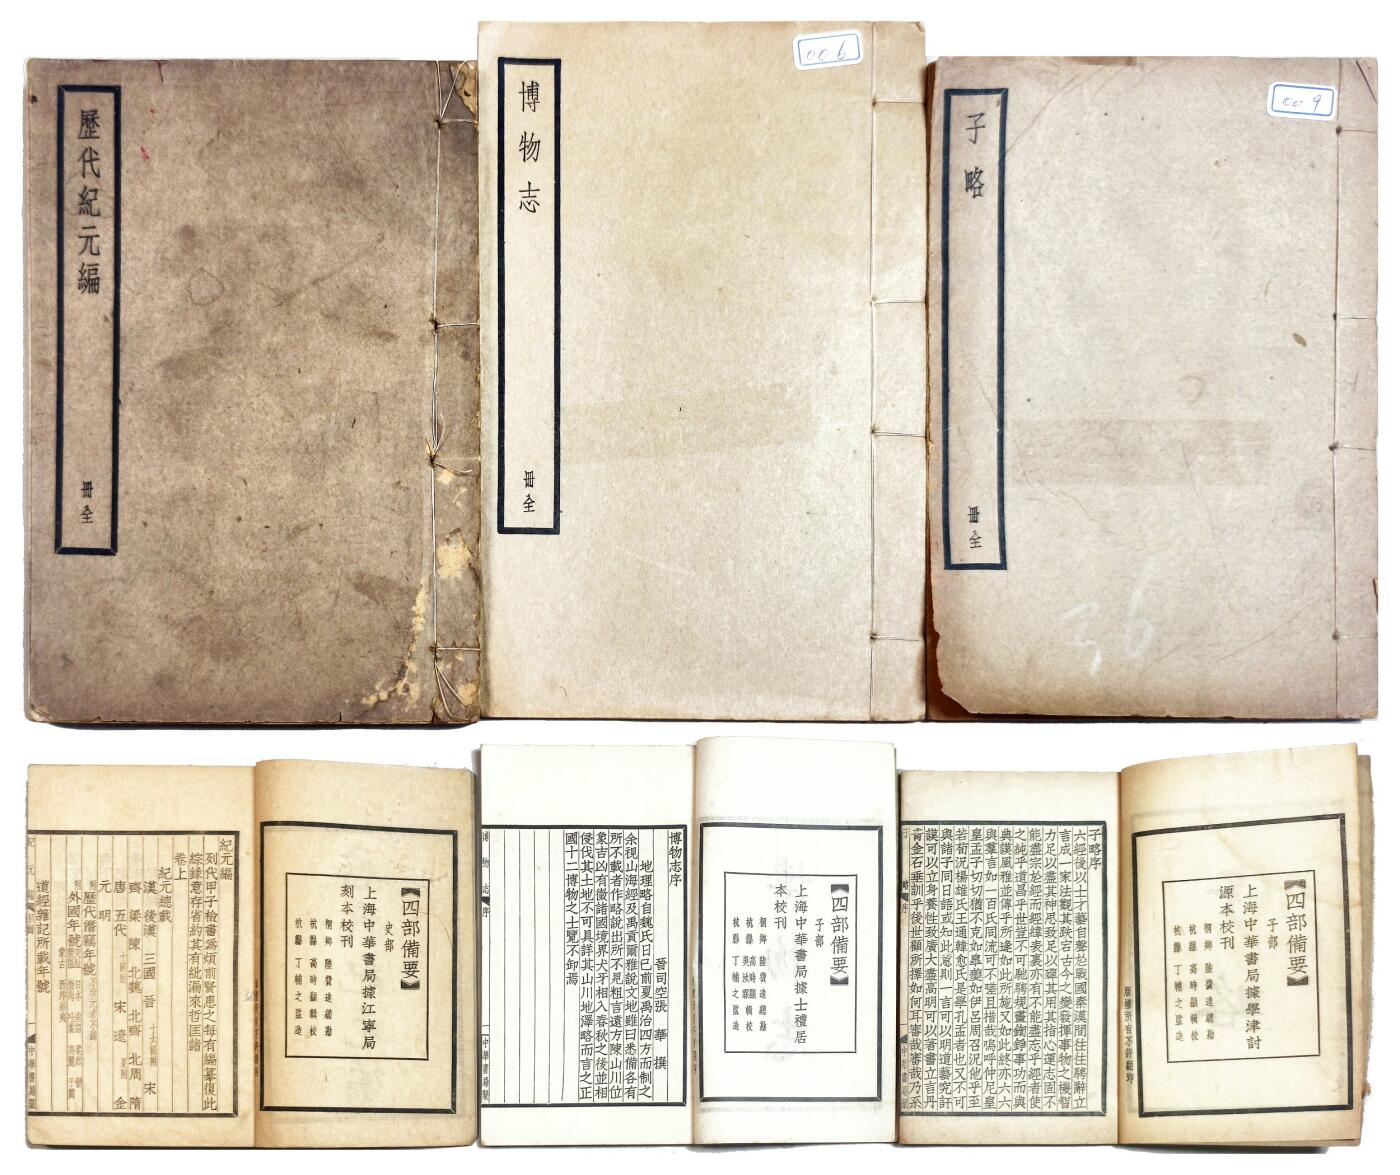 歷代紀元編
冊全
博物志
冊全
006
子略
冊全
009
36
【四部備要】
史部
上海中華書局據江寧局
刻本校刊
桐鄉 陸費逵總勘
杭縣 高時顯輯校
杭縣 丁輔之監造
紀元編
列代甲子檢書爲煩前賢患之每有編纂復此
綜錄意存省約其有紕漏來哲匡諸
卷上
紀元總載
漢 後漢 三國 晉 十六國附 宋
齊 梁 陳 北魏 北齊 北周 隋
唐 五代 十國附 宋 遼 夏附 金
元 明
歷代僭竊年號
外國年號
道經雜記所載年號
中華書局聚
【四部備要】
子部
上海中華書局據士禮居
本校刊
桐鄉 陸費逵總勘
杭縣 高時顯輯校
杭縣 吳汝霖輯校
杭縣 丁輔之監造
博物志序
晉司空張 華 撰
地理略自魏氏日已前夏禹治四方而制之
余視山海經及禹貢爾雅說文地雖曰悉備各有
所不載者作略說出所不見粗言遠方陳山川位
象吉凶有徵諸國境界犬牙相入春秋之後並相
侵伐其土地不可具詳其山川地澤略而言之正
國十二博物之士覽不卸焉
博物志 序
一 中華書局聚
【四部備要】
子部
上海中華書局據學津討
源本校刊
桐鄉 陸費逵總勘
杭縣 高時顯輯校
杭縣 丁輔之監造
版權所有不許翻印
子略序
六經後以士才藝自聲於戰國秦漢間往往騁辭立
言成一家法觀其跌宕古今之變發揮事物之機智
力足以盡其神思致足以殫其用其指心運志固不
能盡宗於經而經緯表裏亦有不能盡忘乎經者使
之純乎道昌乎世豈不可馳騁規畫鉤錚事功而與
典謨風雅並傳乎所逢如此所施又如此終亦六六
與羣言如一百氏同流可不嗟且惜哉嗚呼仲尼皇
皇孟子切切猶不克如皐夔如伊呂周召況他乎至
若荀況楊雄氏王通韓愈氏是學孔孟者也又不可
與諸子同日語或知此意則一言可以明道藝究訏
謨可以立身養性致廣大盡高明可以著書立言丹
青金石垂訓乎後世顧所擇如何耳審哉審哉乃系